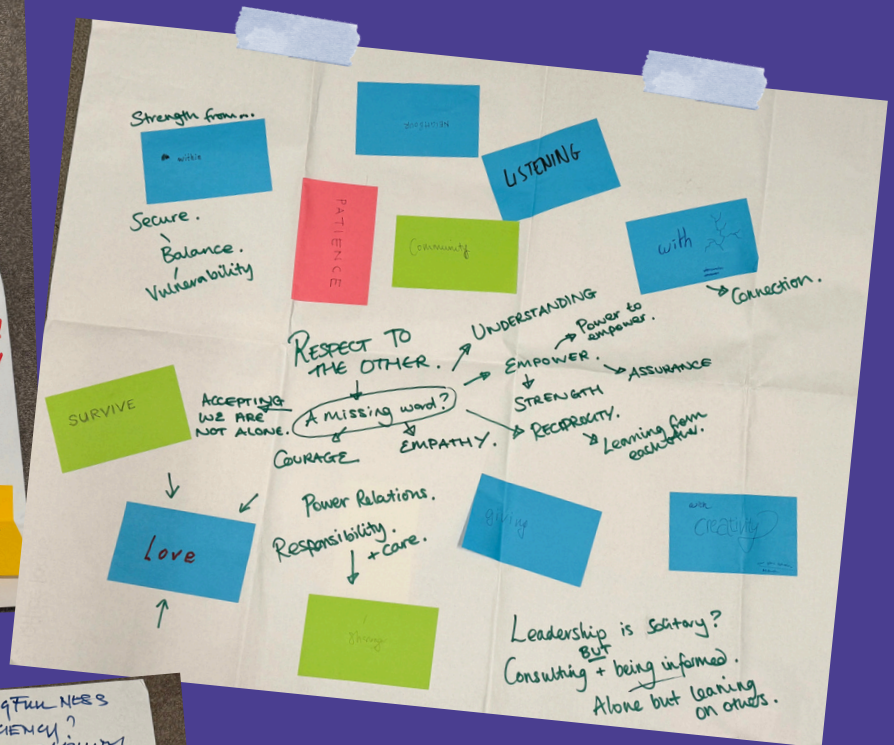 Strength from...
within
Secure.
Balance.
Vulnerability
PATIENCE
Community
LISTENING
with
Connection.
RESPECT TO
THE OTHER.
UNDERSTANDING
Power to
empower.
EMPOWER.
ASSURANCE
STRENGTH
RECIPROCITY.
Learning from
each other.
A missing word?
ACCEPTING
WE ARE
NOT ALONE.
COURAGE
EMPATHY.
SURVIVE
Love
Power Relations.
Responsibility.
+ care.
Sharing
giving
with
Creativity
Leadership is solitary?
BUT
Consulting + being informed.
Alone but leaning
on others.
NESS